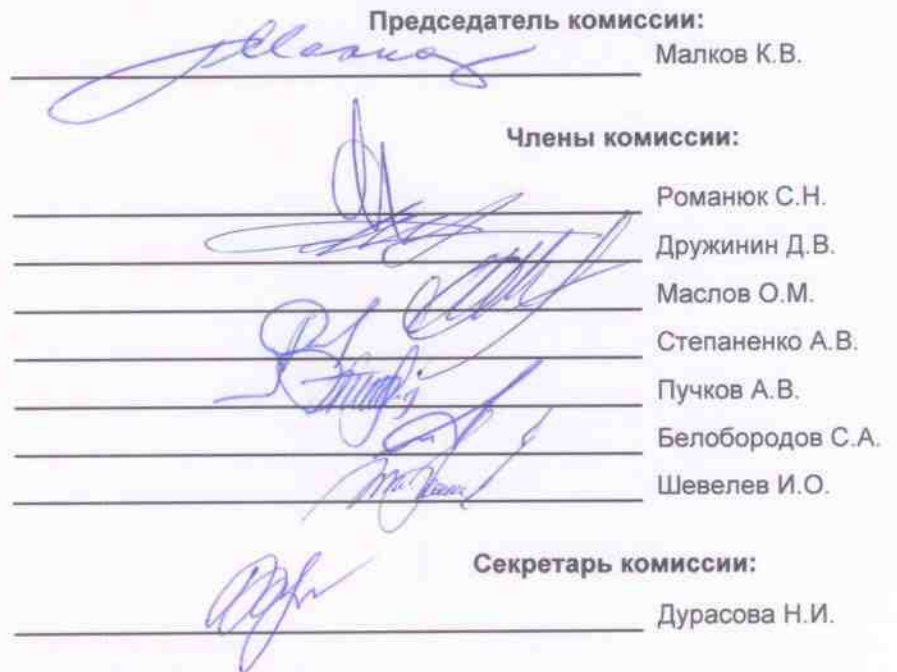 Председатель комиссии:
Малков К.В.
Члены комиссии:
Романюк С.Н.
Дружинин Д.В.
Маслов О.М.
Степаненко А.В.
Пучков А.В.
Белобородов С.А.
Шевелев И.О.
Секретарь комиссии:
Дурасова Н.И.